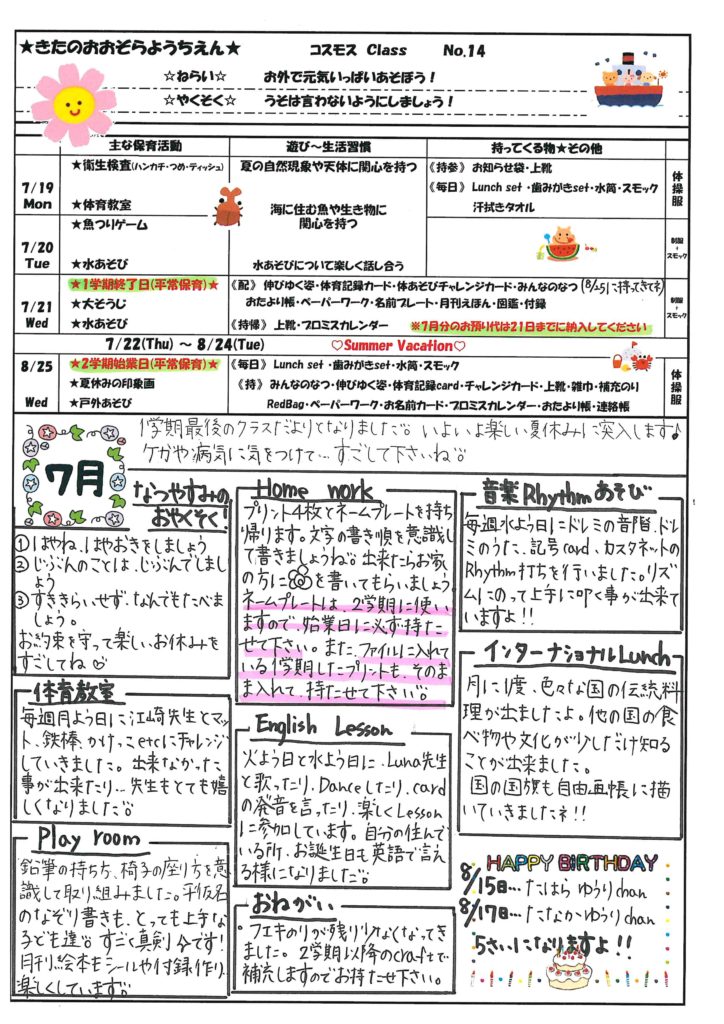 ★きたのおおぞらようちえん★ コスモス Class No.14
☆ねらい☆ お外で元気いっぱいあそぼう！
☆やくそく☆ うそは言わないようにしましょう！
主な保育活動 遊び～生活習慣 持ってくる物★その他
7/19 Mon
★衛生検査(ハンカチ・つめ・ティッシュ)
★体育教室
夏の自然現象や天体に関心を持つ
海に住む魚や生き物に
関心を持つ
《持参》 お知らせ袋・上靴
《毎日》 Lunch set ・歯みがきset・水筒・スモック
汗拭きタオル
体操服
7/20 Tue
★魚つりゲーム
★水あそび
水あそびについて楽しく話し合う
制服+スモック
7/21 Wed
★1学期終了日(平常保育)★
★大そうじ
★水あそび
《配》 伸びゆく姿・体育記録カード・体あそびチャレンジカード・みんなのなつ(8/25に持ってきてネ)
おたより帳・ペーパーワーク・名前プレート・月刊えほん・図鑑・付録
《持帰》 上靴・プロミスカレンダー ※7月分のお預り代は21日までに納入してください
制服+スモック
7/22(Thu) ～ 8/24(Tue) ♡Summer Vacation♡
8/25 Wed
★2学期始業日(平常保育)★
★夏休みの印象画
★戸外あそび
《毎日》 Lunch set ・歯みがきset・水筒・スモック
《持》 みんなのなつ・伸びゆく姿・体育記録card・チャレンジカード・上靴・雑巾・補充のり
RedBag・ペーパーワーク・お名前カード・プロミスカレンダー・おたより帳・連絡帳
体操服
7月
1学期最後のクラスだよりとなりました。いよいよ楽しい夏休みに突入します♪
ケガや病気に気をつけて…すごして下さいね
なつやすみの
おやくそく！
①はやね、はやおきをしましょう
②じぶんのことは、じぶんでしましょ
う
③すききらいせず、なんでもたべま
しょう。
お約束を守って楽しいお休みを
すごしてね♡
体育教室
毎週月よう日に江崎先生とマッ
ト、鉄棒、かけっこetcにチャレンジ
していきました。出来なかった
事が出来たり…先生もとても嬉
しくなりました
Play room
鉛筆の持ち方、椅子の座り方を意
識して取り組みました。平仮名
のなぞり書きも、とっても上手な
子ども達 すごく真剣です！
月刊絵本もシールや付録作り、
楽しくしています
Home work
プリント4枚とネームプレートを持ち
帰ります。文字の書き順を意識し
て書きましょうね 出来たらお家
の方に を書いてもらいましょう
ネームプレートは、2学期に使い
ますので、始業日に必ず持た
せて下さい。また、ファイルに入れて
いる1学期したプリントも、そのま
ま入れて、持たせて下さい
English Lesson
火よう日と水よう日に、Luna先生
と歌ったり、Danceしたり、card
の発音を言ったり、楽しくLesson
に参加しています。自分の住んで
いる所、お誕生日も英語で言え
る様になりました
おねがい
・フエキのりが残り少なくなってき
ました。2学期以降のcraftで
補充しますのでお持たせ下さい。
音楽Rhythmあそび
毎週水よう日にドレミの音階、ドレ
ミのうた、記号card、カスタネットの
Rhythm打ちを行いました。リズ
ムにのって上手に叩く事が出来て
いますよ！！
インターナショナルLunch
月に1度、色々な国の伝統料
理が出ましたよ。他の国の食
べ物や文化が少しだけ知る
ことが出来ました。
国の国旗も自由画帳に描
いていきましたネ！！
HAPPY BiRTHDAY
8/15日…たはら ゆうりchan
8/17日…たなか ゆうりchan
5さいになりますよ！！